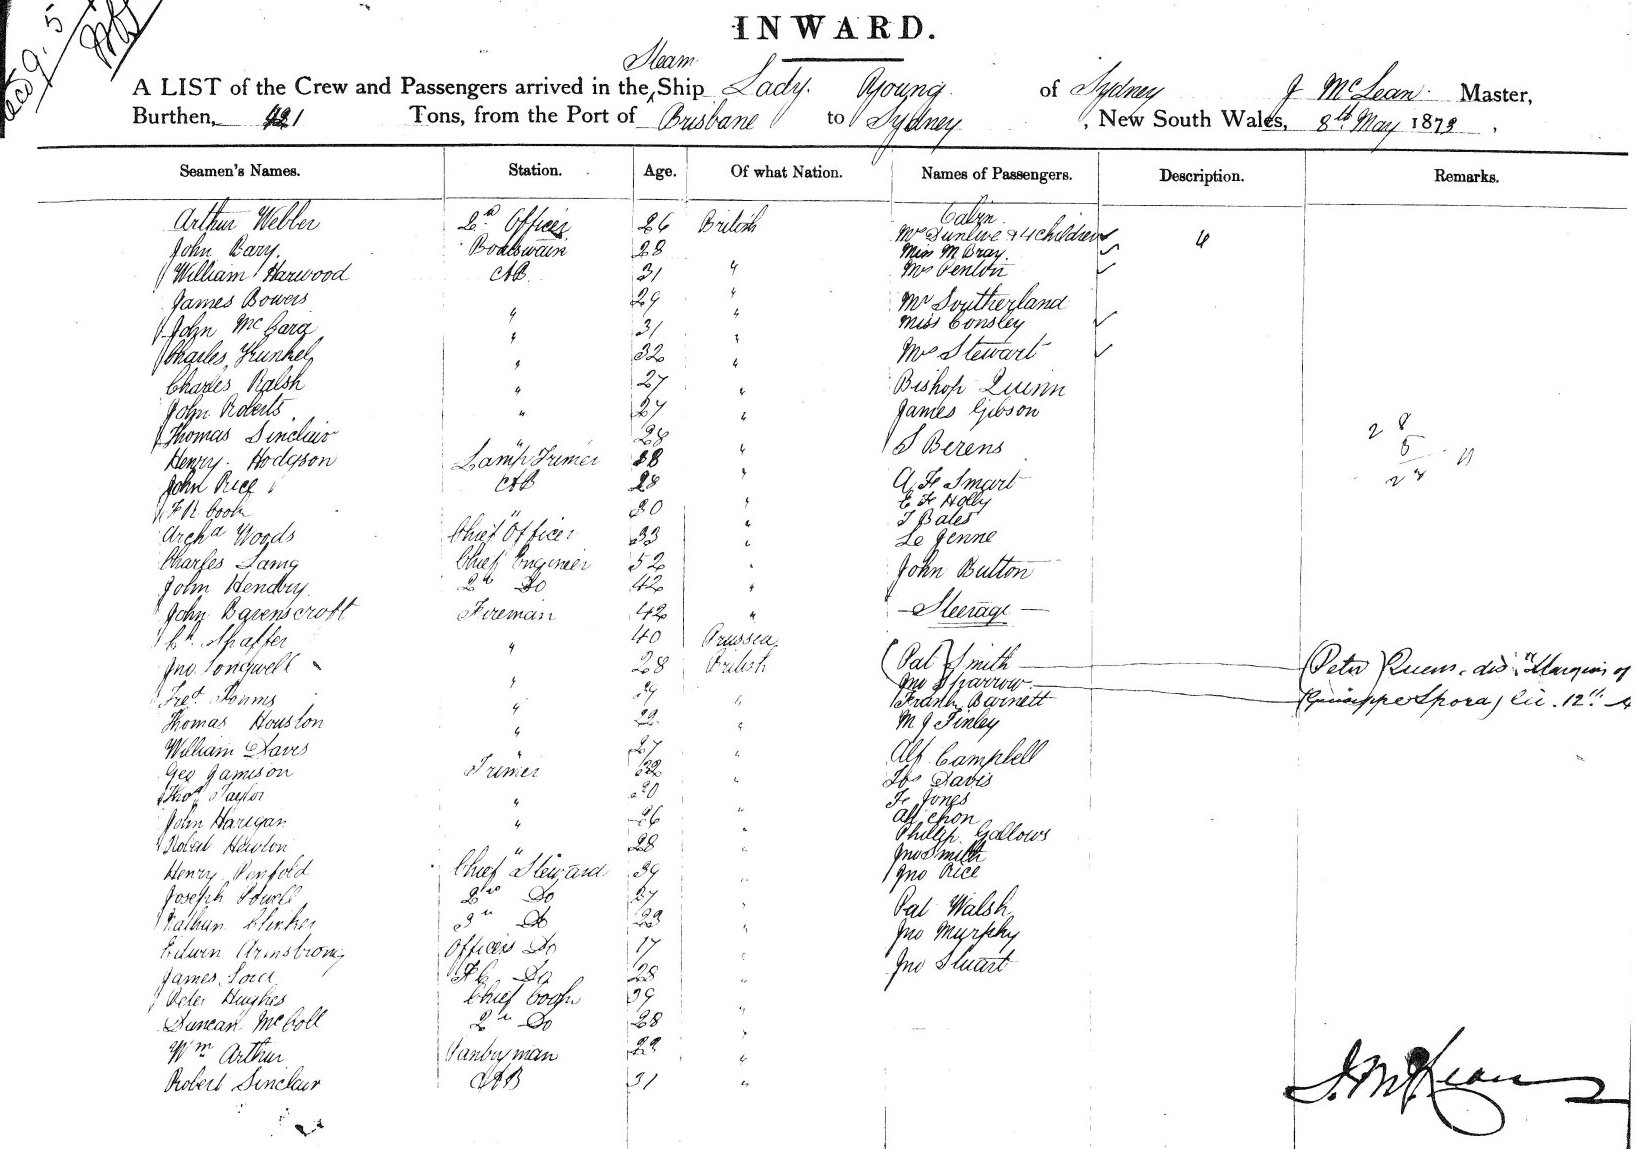 INWARD.
Steam
A LIST of the Crew and Passengers arrived in the Ship Lady Young of Sydney J McLean Master,
Burthen, 421 Tons, from the Port of Brisbane to Sydney, New South Wales, 8th May 1873.
Seamen's Names. Station. Age. Of what Nation. Names of Passengers. Description. Remarks.
Cabin
Arthur Webber 2nd Officer 26 British
Mrs & 4 children ✓
John Bary. Boatswain 28 Miss M Bray. ✓
William Harwood AB 31 " Mrs Penton ✓
James Bowers " 29 " Mr Southerland
John McGara " 31 " Miss Consley ✓
Charles 32 " Mrs Stewart ✓
Charles Ralsh " 27 " Bishop Quinn
John Roberts " 27 " James Gibson
Thomas Sinclair " 28 " S Berens
Henry Hodgson Lamp Trimer 28 "
John Rice AB 28 A F Smart
F R Cook " 20 " E F Holly
T Bates
Archd Woods Chief Officer 33 " Le Jenne
Charles Lamg Chief Engineer 52 " John Button
John Hendry 2nd Do 42 "
John Bavenscroft Fireman 42 " Steerage
Ch Shaffer " 40 Prussea
Jno Longwell " 28 British (Pat) Smith (Peter)
Jno Sparrow
" " Frank Barnett (Guiseppe Spora)
Thomas Houston " 22 " M J Finley
William Davis " 27 " Alf Campbell
Geo Jamison Trimer 32 " Davis
Thos Taylor " 20 F Jones
John Harigan " 26 "
Phillip Gallows
Robert Hewton " 28 " Jno Smith
Henry Penfold Chief Steward 39 " Jno Rice
Joseph Powell 2nd Do 27 "
3rd Do 23 " Pat Walsh
Edwin Armstrong Officers Do 17 " Jno Murphy
James Lord F C Do 28 " Jno Stuart
Peter Hughes Chief Cook 39 "
Duncan McColl 2nd Do 28 "
Wm Arthur Pantryman 23 "
Robert Sinclair AB 31 "
J. McLean